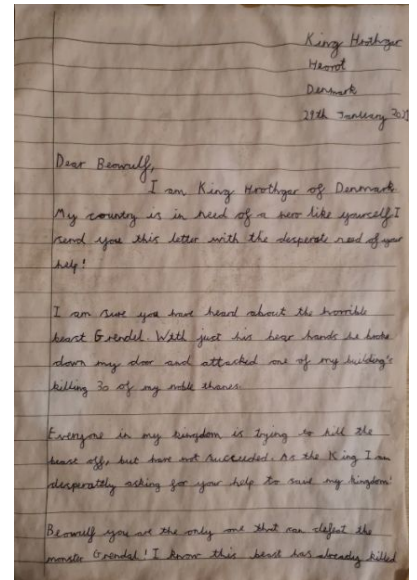 King Hrothgar
Heorot
Denmark
29th January
Dear Beowulf,
I am King Hrothgar of Denmark
My country is in need of a hero like yourself. I
send you this letter with the desperate need of your
help!
I am sure you have heard about the horrible
beast Grendel. With just his bear hands he broke
down my door and attacked one of my building's
killing 30 of my noble thanes.
Everyone in my kingdom is trying to kill the
beast off, but have not succeeded. As the King I am
desperately asking for your help to save my kingdom!
Beowulf you are the only one that can defeat the
monster Grendel! I know this beast has already killed